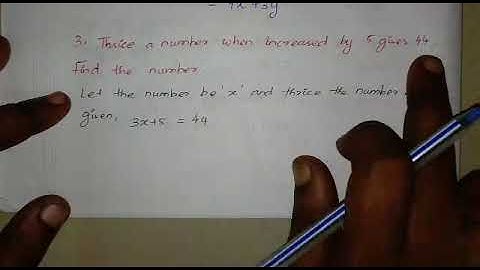 3. Thrice a number when increased by 5 gives 44.
Find the number
Let the number be 'x' and thrice the number
given, 3x+5 = 44